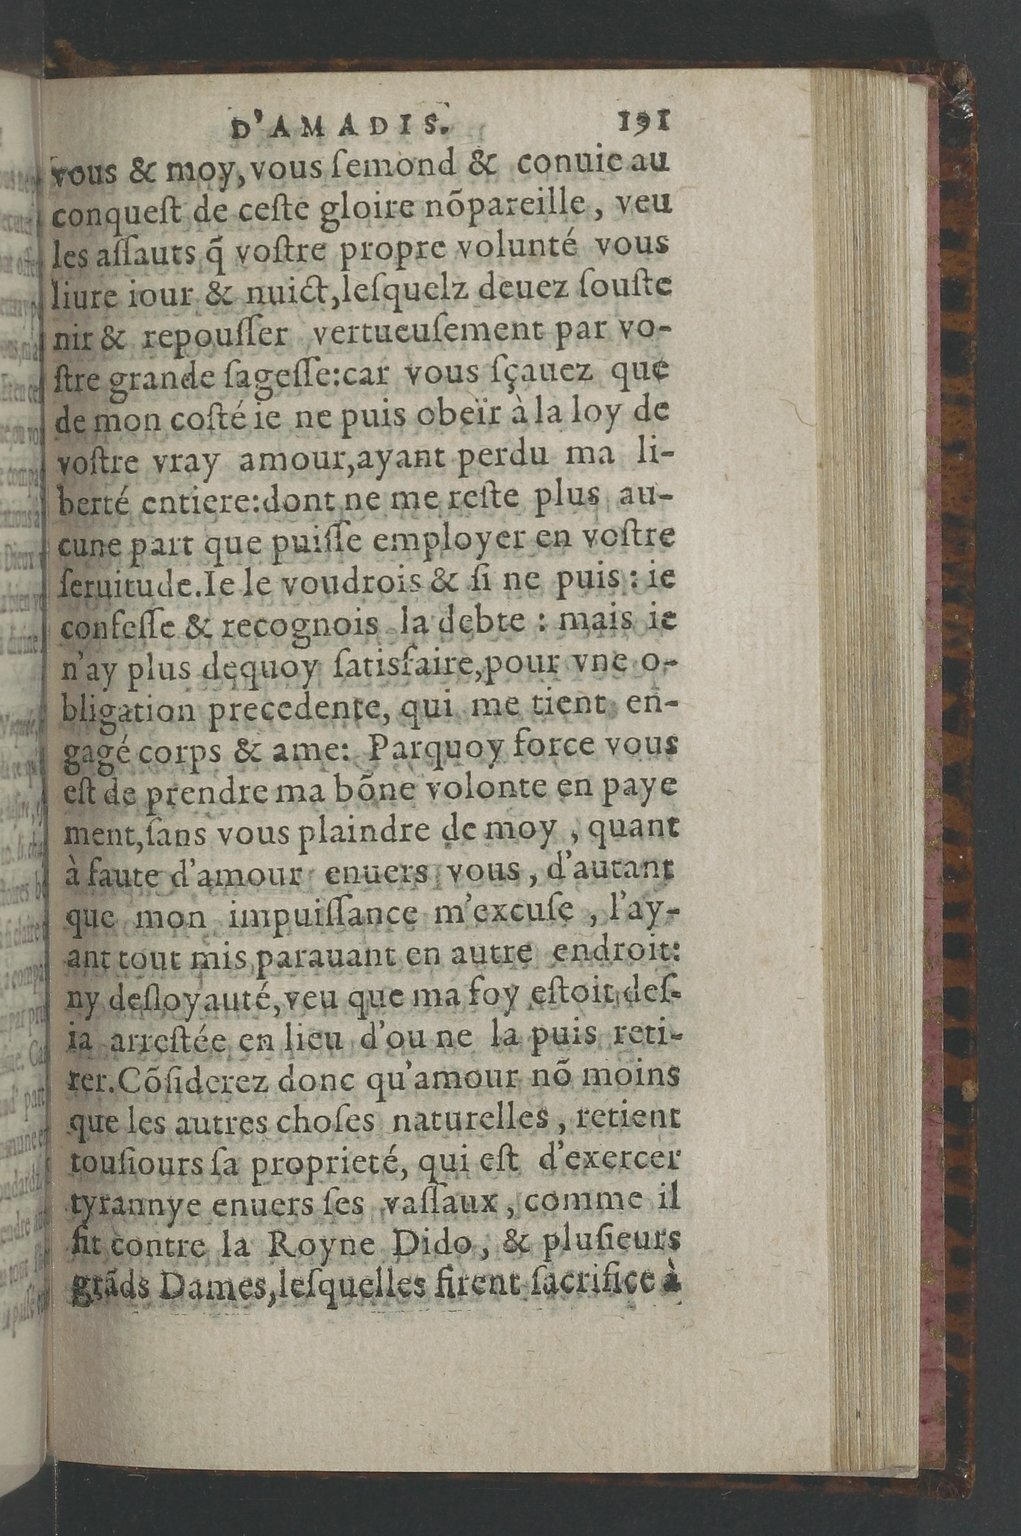 D'AMADIS. 191
vous & moy, vous ſemond & conuie au
conqueſt de ceſte gloire nõpareille, veu
les aſſauts q̃ voſtre propre volunté vous
liure iour & nuict, leſquelz deuez ſouſte
nir & repouſſer vertueuſement par vo-
ſtre grande ſageſſe: car vous ſçauez que
de mon coſté ie ne puis obeïr à la loy de
voſtre vray amour, ayant perdu ma li-
berté entiere: dont ne me reſte plus au-
cune part que puiſſe employer en voſtre
ſeruitude. Ie le voudrois & ſi ne puis: ie
confeſſe & recognois la debte: mais ie
n'ay plus dequoy ſatisfaire, pour vne o-
bligation precedente, qui me tient en-
gagé corps & ame: Parquoy force vous
eſt de prendre ma bõne volonte en paye
ment, ſans vous plaindre de moy, quant
à faute d'amour enuers vous, d'autant
que mon impuiſſance m'excuſe, l'ay-
ant tout mis parauant en autre endroit:
ny deſloyauté, veu que ma foy eſtoit deſ-
ia arreſtée en lieu d'ou ne la puis reti-
rer. Cõſiderez donc qu'amour nõ moins
que les autres choſes naturelles, retient
touſiours ſa proprieté, qui eſt d'exercer
tyrannye enuers ſes vaſſaux, comme il
fit contre la Royne Dido, & pluſieurs
grãds Dames, leſquelles firent ſacrifice à